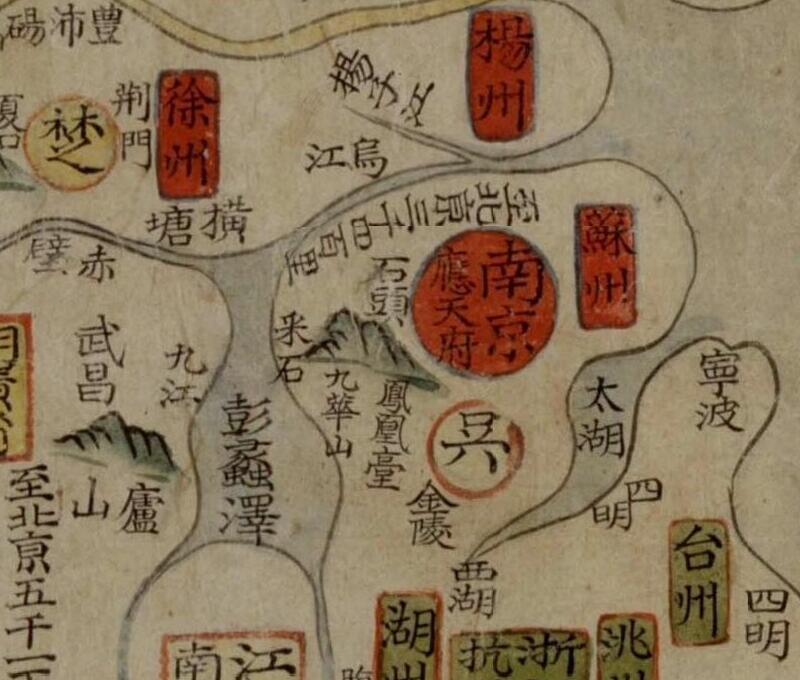 豊沛碭
楊州
楊子江
徐州
荆門
楚
烏江
橫塘
至北京三千四百里
蘇州
南京
應天府
石頭
采石
九華山
鳳凰臺
吳
金陵
太湖
四明
西湖
寧波
台州
四明
赤壁
武昌
九江
彭蠡澤
廬山
至北京五千一百
江南
湖州
浙抗
洮州